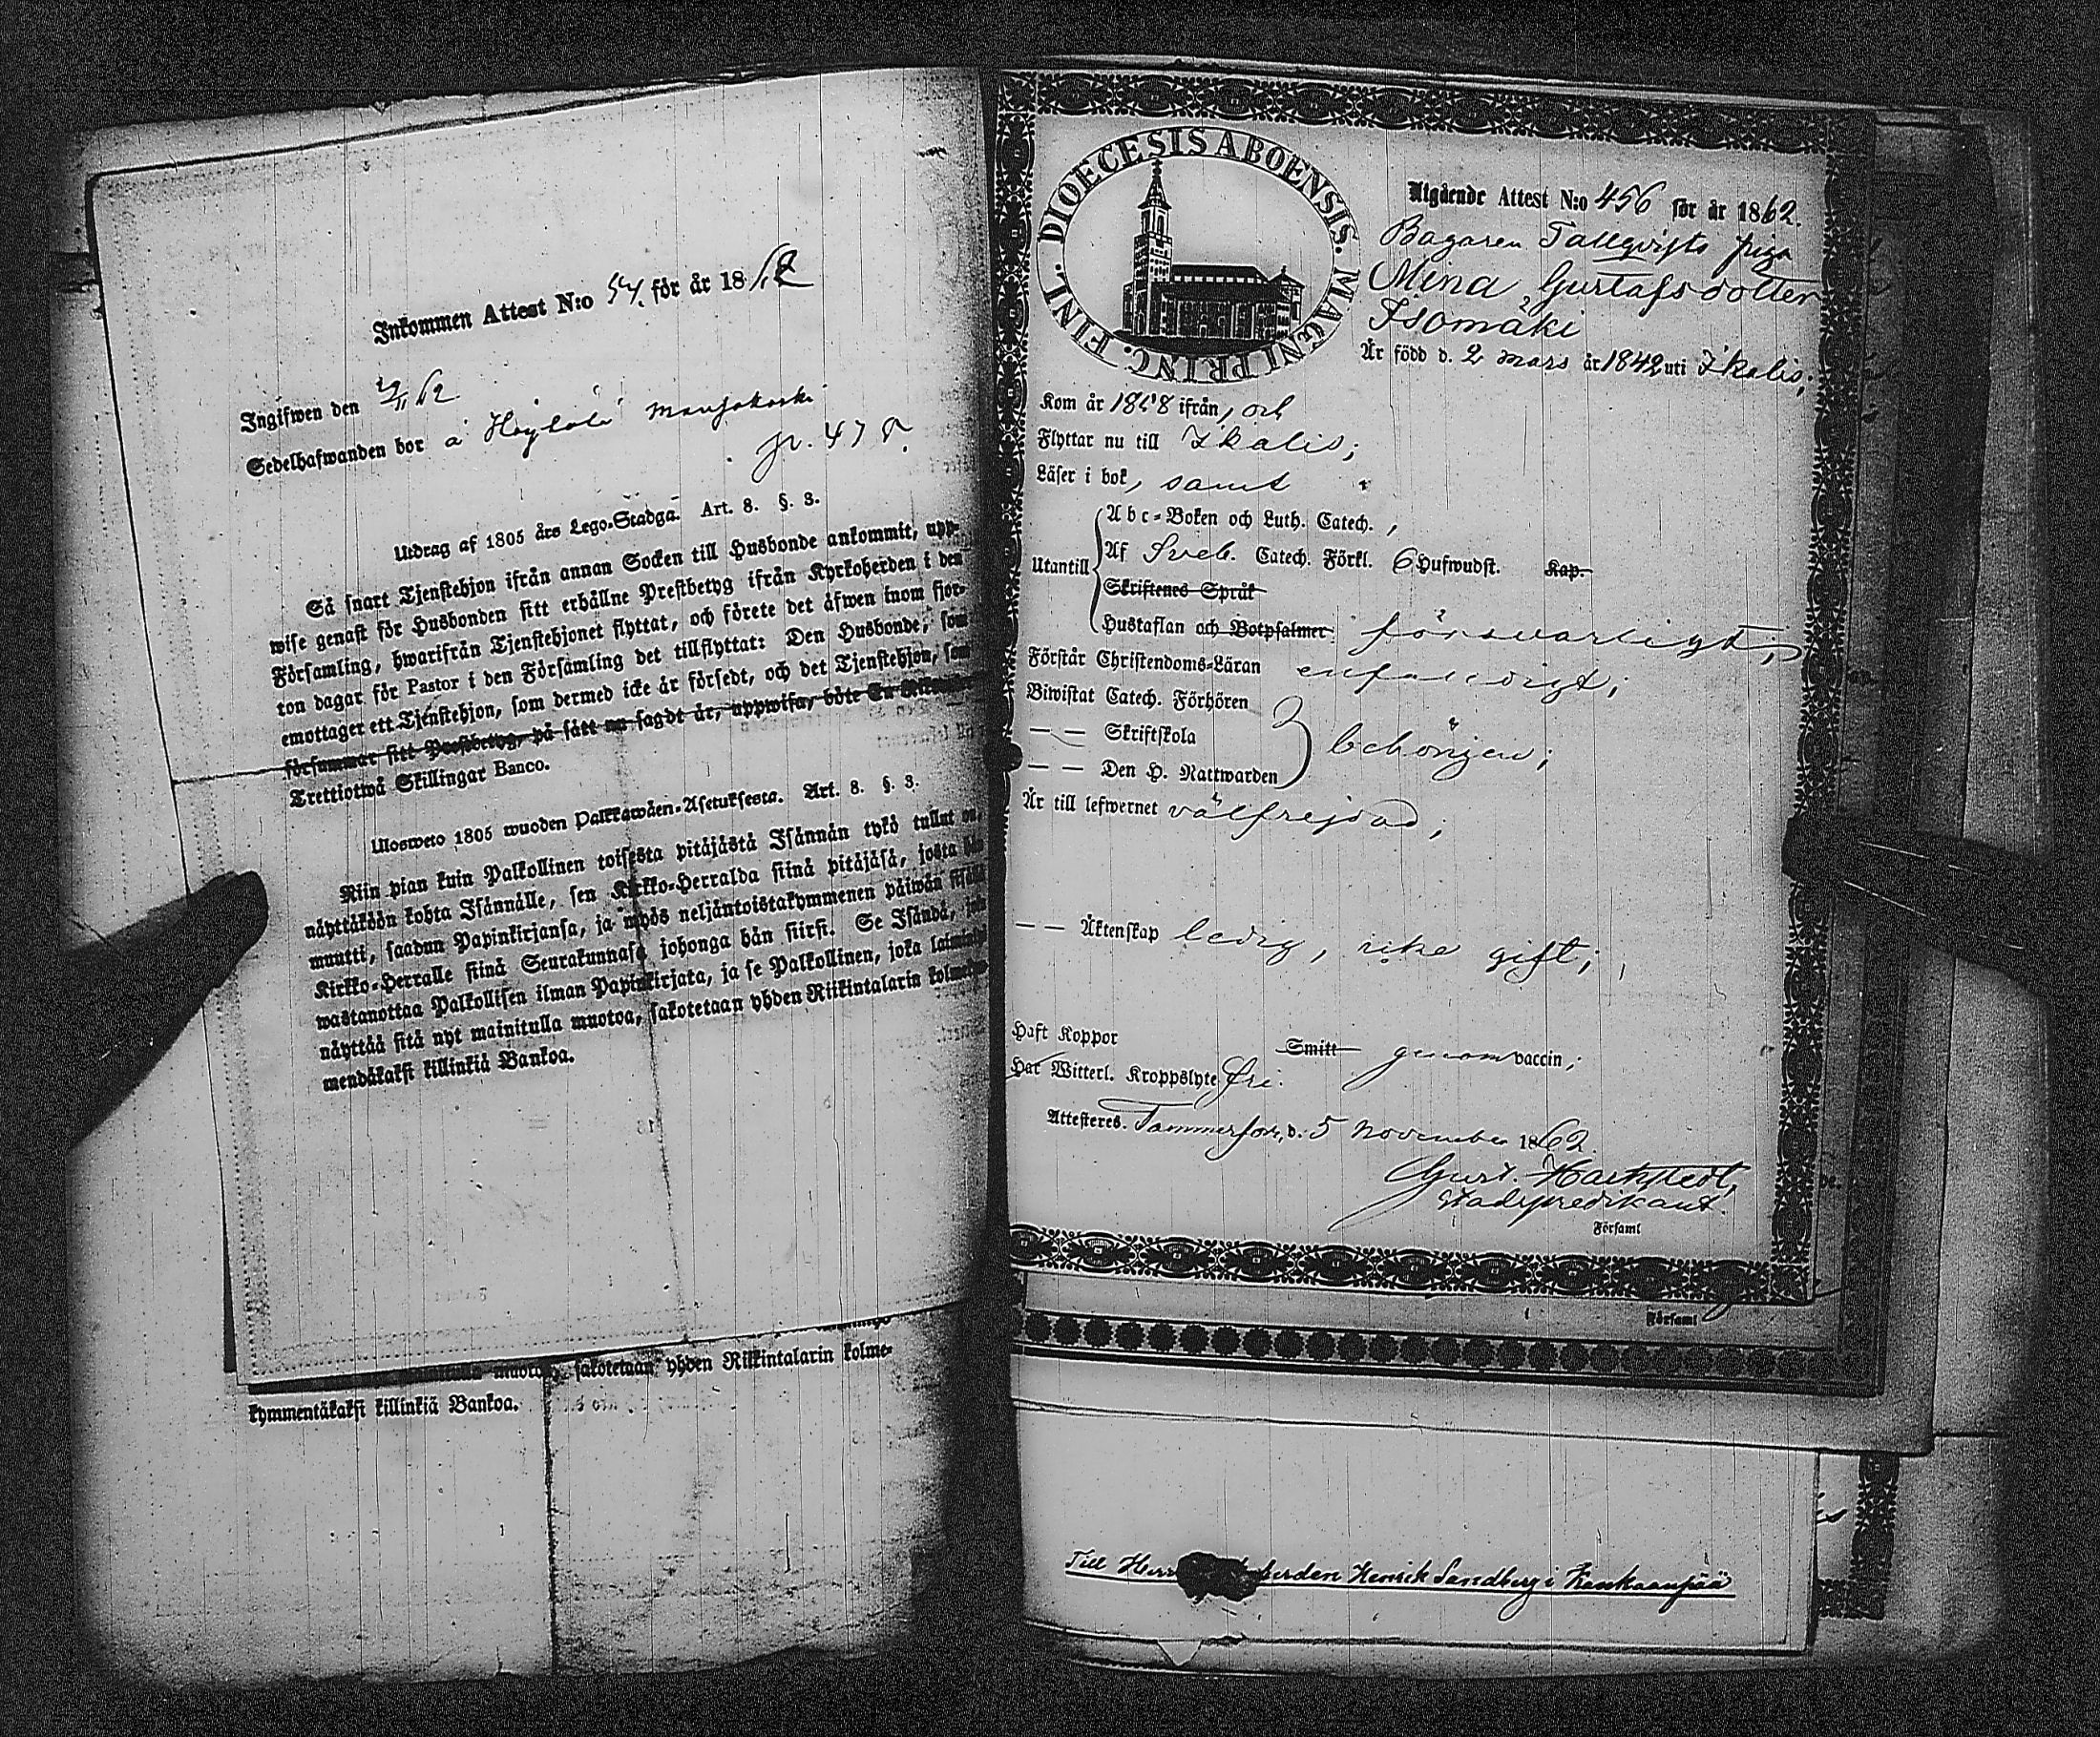 Inkommen Attest N:o 54. för år 1862
Ingifwen den /11 62
Sedelhafwanden bor å
Utdrag af 1805 års Lego-Stadga. Art. 8. §. 3.
Så snart Tjenstehjon ifrån annan Socken till Husbonde ankommit, upp-
wise genast för Husbonden sitt erhållne Prestbetyg ifrån Kyrkoherden i den
Församling, hwarifrån Tjenstehjonet flyttat, och förete det äfwen inom fjor-
ton dagar för Pastor i den Församling det tillflyttat: Den Husbonde, som
emottager ett Tjenstehjon, som dermed icke är försedt, och det Tjenstehjon, som
försummar sitt Prestbetyg, på sätt nu sagdt är, uppwisa, böte En
Trettiotwå Skillingar Banco.
Ulosweto 1805 wuoden Palkkawäen-Asetuksesta. Art. 8. §. 3.
Niin pian kuin Palkollinen toisesta pitäjästä Isännän tykö tullut on,
näyttäköön kohta Isännälle, sen Kirkko-Herralda siinä pitäjäsä, josta hän
muutti, saadun Papinkirjansa, ja myös neljäntoistakymmenen päiwän sisällä
Kirkko-Herralle siinä Seurakunnasa johonga hän siirsi. Se Isändä, joka
wastanottaa Palkollisen ilman Papinkirjata, ja se Palkollinen, joka laiminlyö
näyttää sitä nyt mainitulla muotoa, sakotetaan yhden Riikintalarin kolmeky-
mendäkaksi killinkiä Bankoa.
muotoa, sakotetaan yhden Riikintalarin kolme-
kymmentäkaksi killinkiä Bankoa.
DIOECESIS ABOENSIS. MAGNI PRINC. FINL.
Utgående Attest N:o 456 för år 1862.
Bagaren Tallqvists piga
Mina Gustafsdotter
Isomäki
Är född d. 2 mars år 1842 uti Ikalis;
Kom år 1858 ifrån, och
Flyttar nu till Ikalis;
Läser i bok, samt
Utantill
Abc-Boken och Luth. Catech.,
Af Sveb. Catech. Förkl. 6 Hufwudst. Kap.
Skriftenes Språk
Hustaflan och Botpsalmer: försvarligt;
Förstår Christendoms-Läran enfaldigt;
Biwistat Catech. Förhören
— — Skriftskola behörigen;
— — Den H. Nattwarden
Är till lefwernet välfrejdad;
— — Äktenskap ledig, icke gift;
Haft Koppor Smitt genom vaccin;
Har Witterl. Kroppslyte fri.
Attesteres. Tammerfors, d. 5 November 1862.
Gust. Hartstedt,
Stadspredikant.
Församl
Församl
Till Herr Henrik Sandberg i Kankaanpää